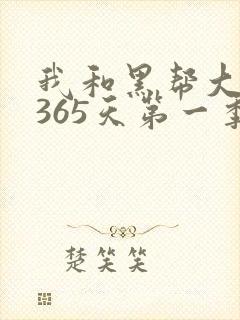 我和黑帮大
365天第一季
楚笑笑